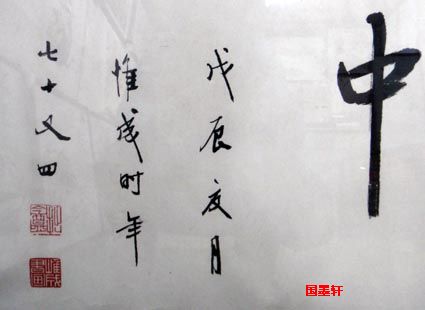 中
戊辰夏月
惟成时年
七十又四
国墨轩